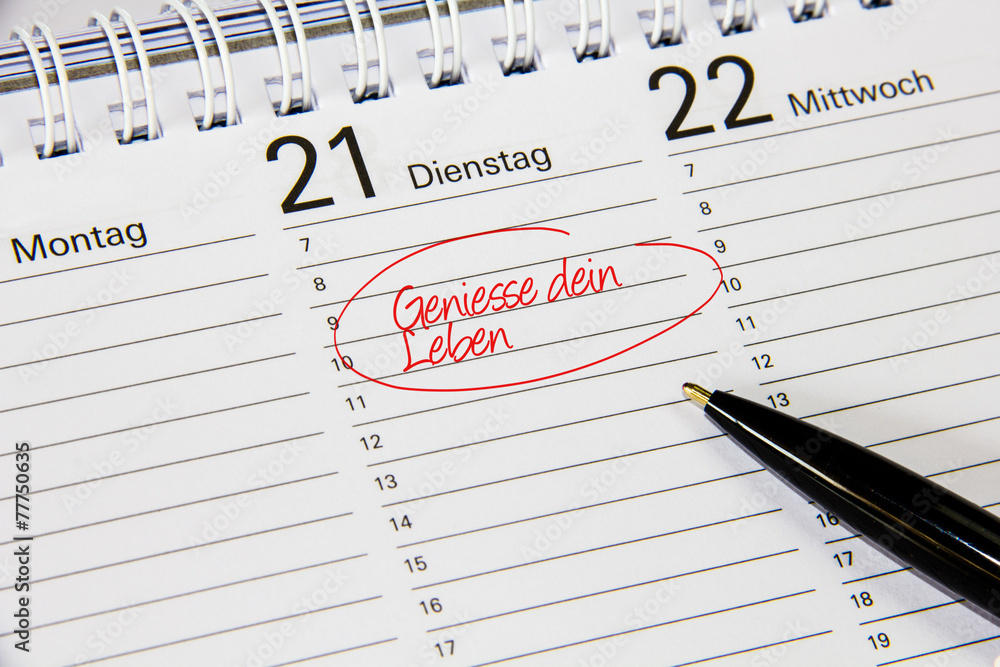 Montag
21 Dienstag
22 Mittwoch
7
8
9
10
11
12
13
14
15
16
17
Geniesse dein
Leben
7
8
9
10
11
12
13
16
17
18
19
Adobe Stock | #77750635